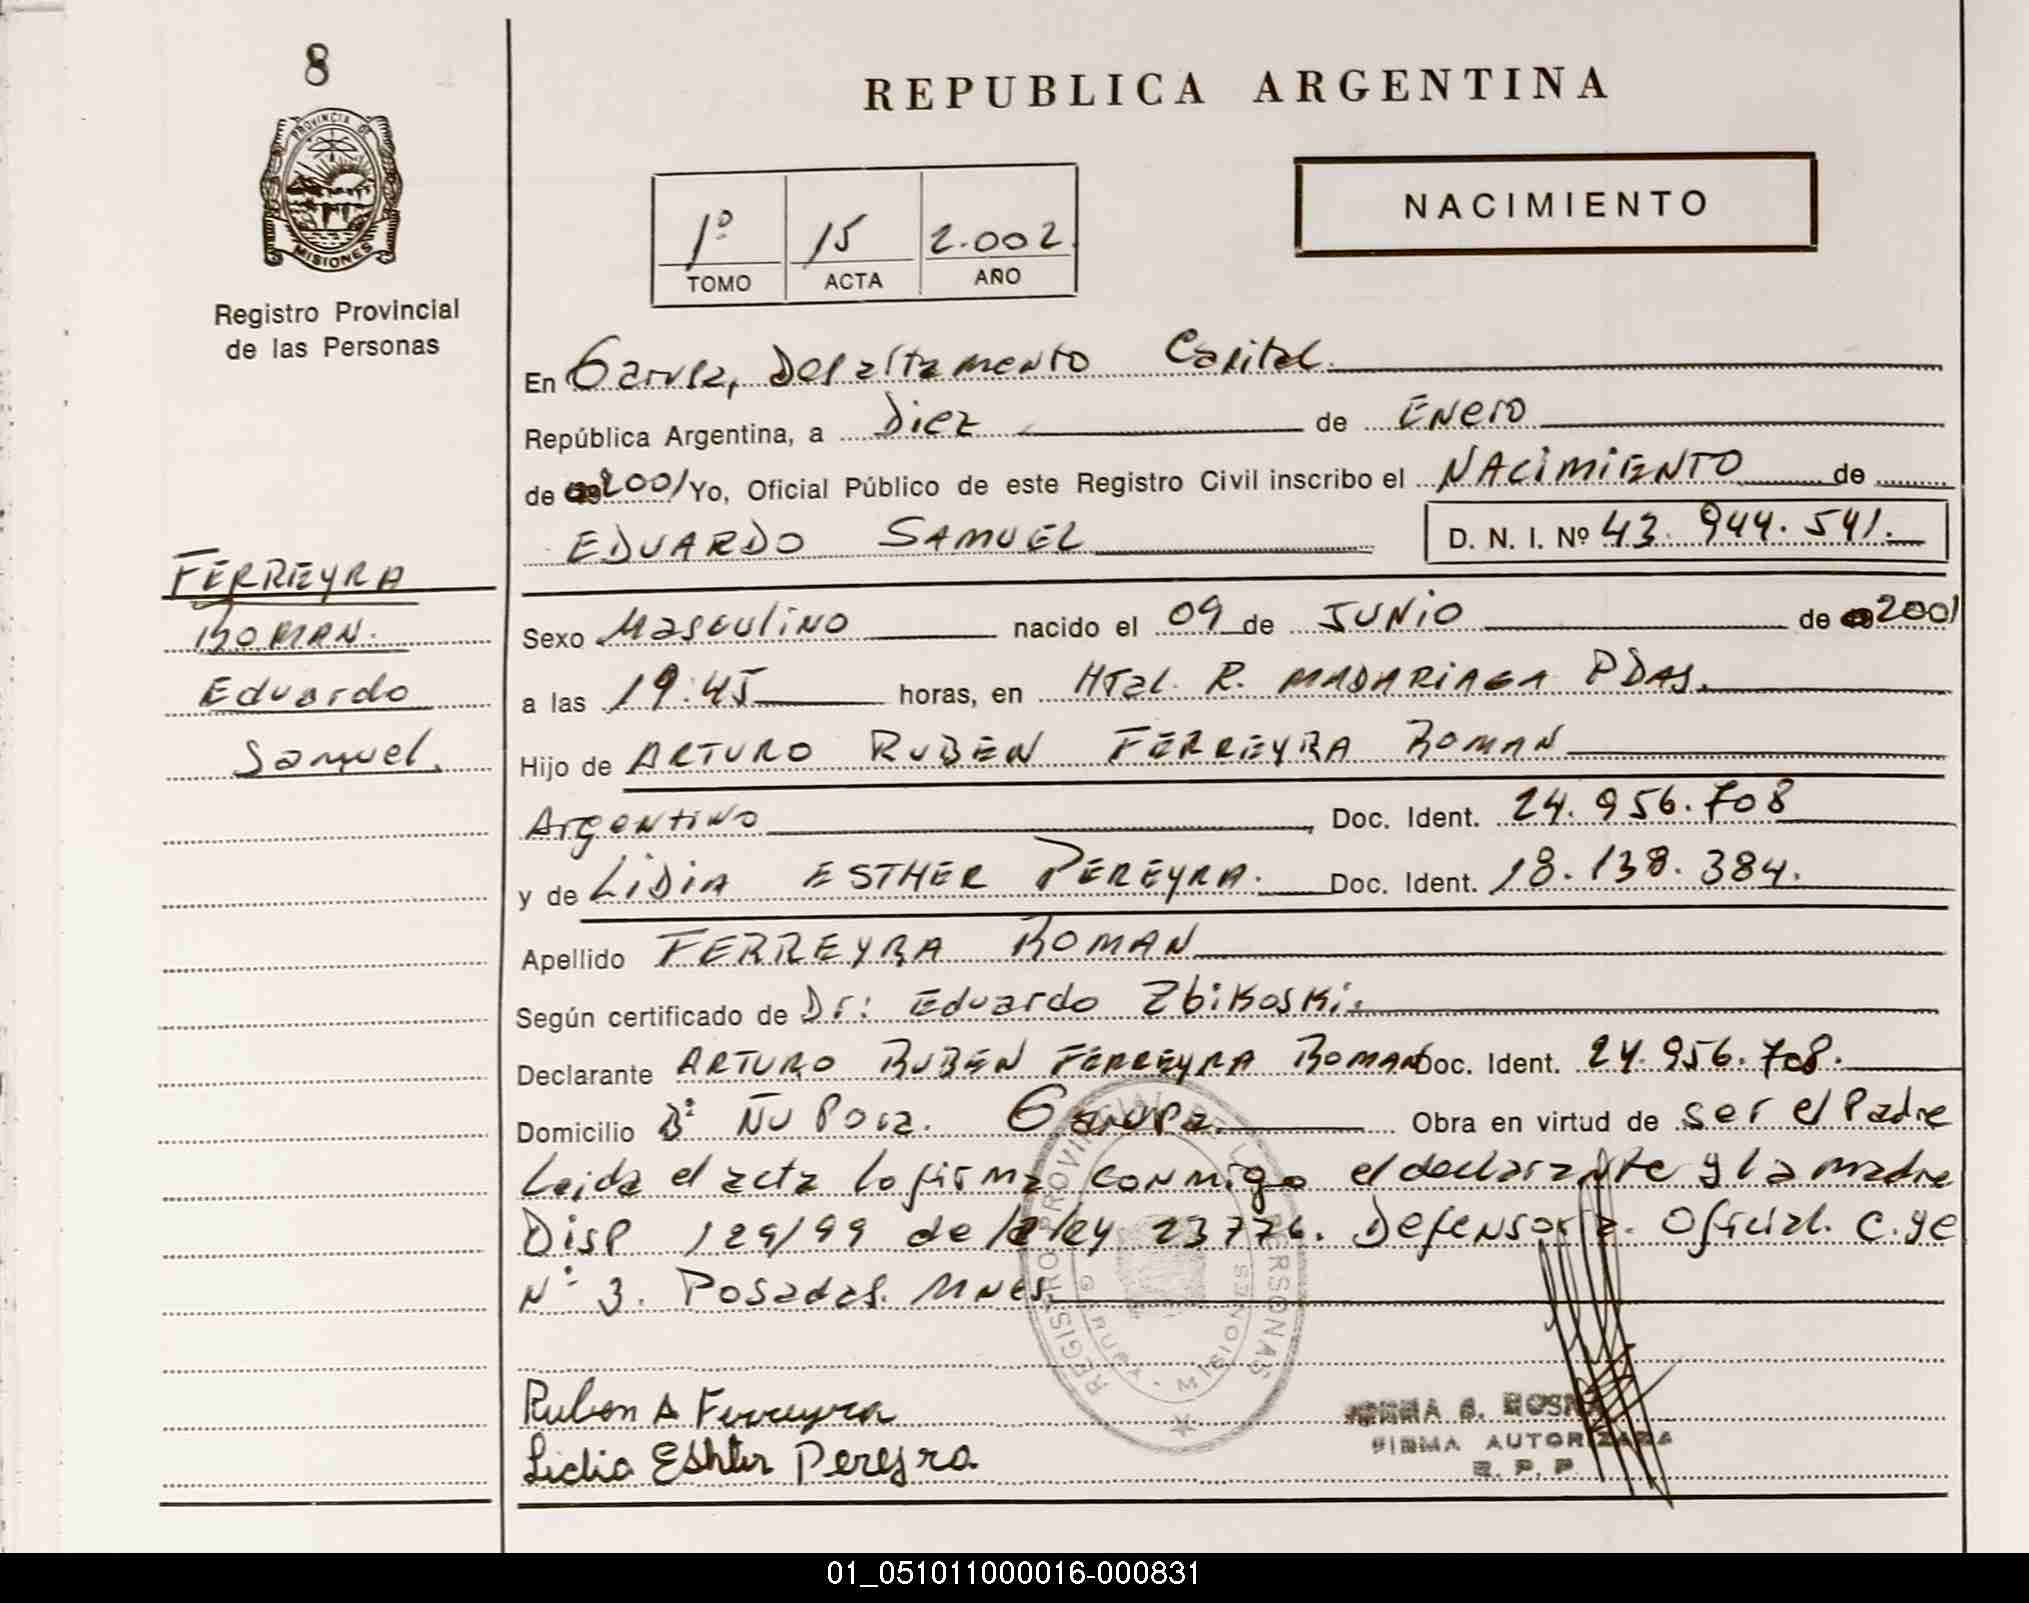 8
REPUBLICA ARGENTINA
PROVINCIA DE
MISIONES
Registro Provincial
de las Personas
1º 15 2.002
TOMO ACTA AÑO
NACIMIENTO
En Garupa, Departamento Capital.
República Argentina, a Diez de Enero
de 2001 Yo, Oficial Público de este Registro Civil inscribo el NACIMIENTO de
EDUARDO SAMUEL D. N. I. Nº 43.944.541.
FERREYRA
ROMAN.
Eduardo
Samuel.
Sexo Masculino nacido el 09 de JUNIO de 2001
a las 19:45 horas, en Htal. R. MADARIAGA PDAS.
Hijo de ARTURO RUBEN FERREYRA ROMAN
Argentino, Doc. Ident. 24.956.708
y de LIDIA ESTHER PEREYRA. Doc. Ident. 18.138.384.
Apellido FERREYRA ROMAN
Según certificado de Dr: Eduardo Zbikoski.
Declarante ARTURO RUBEN FERREYRA ROMAN Doc. Ident. 24.956.708.
Domicilio Bº Ñu Pora. Garupa. Obra en virtud de ser el Padre
Leida el acta lo firma conmigo el declarante y la madre
Disp 129/99 de la ley 23776. Defensoria Oficial. C. ye
Nº 3. Posadas. Mnes.
REGISTRO PROVINCIAL DE LAS PERSONAS
GARUPA - MISIONES
Ruben A Ferreyra
Lidia Eshter Pereyra
FIRMA AUTORIZADA
R. P. P.
01_051011000016-000831